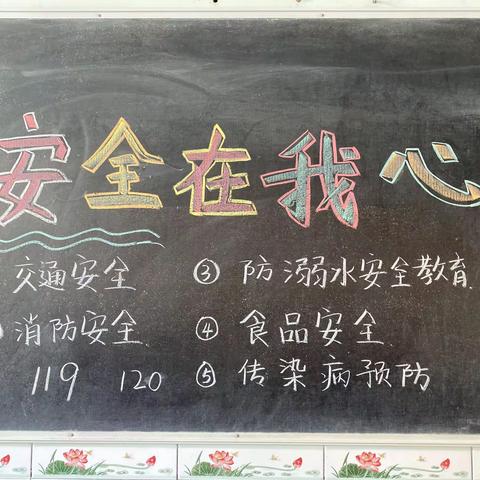 安全在我心
交通安全
消防安全
119 120
③ 防溺水安全教育
④ 食品安全
⑤ 传染病预防